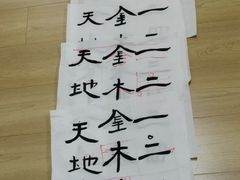 一
金
天
一二
金木
天地
一二
金木
天地